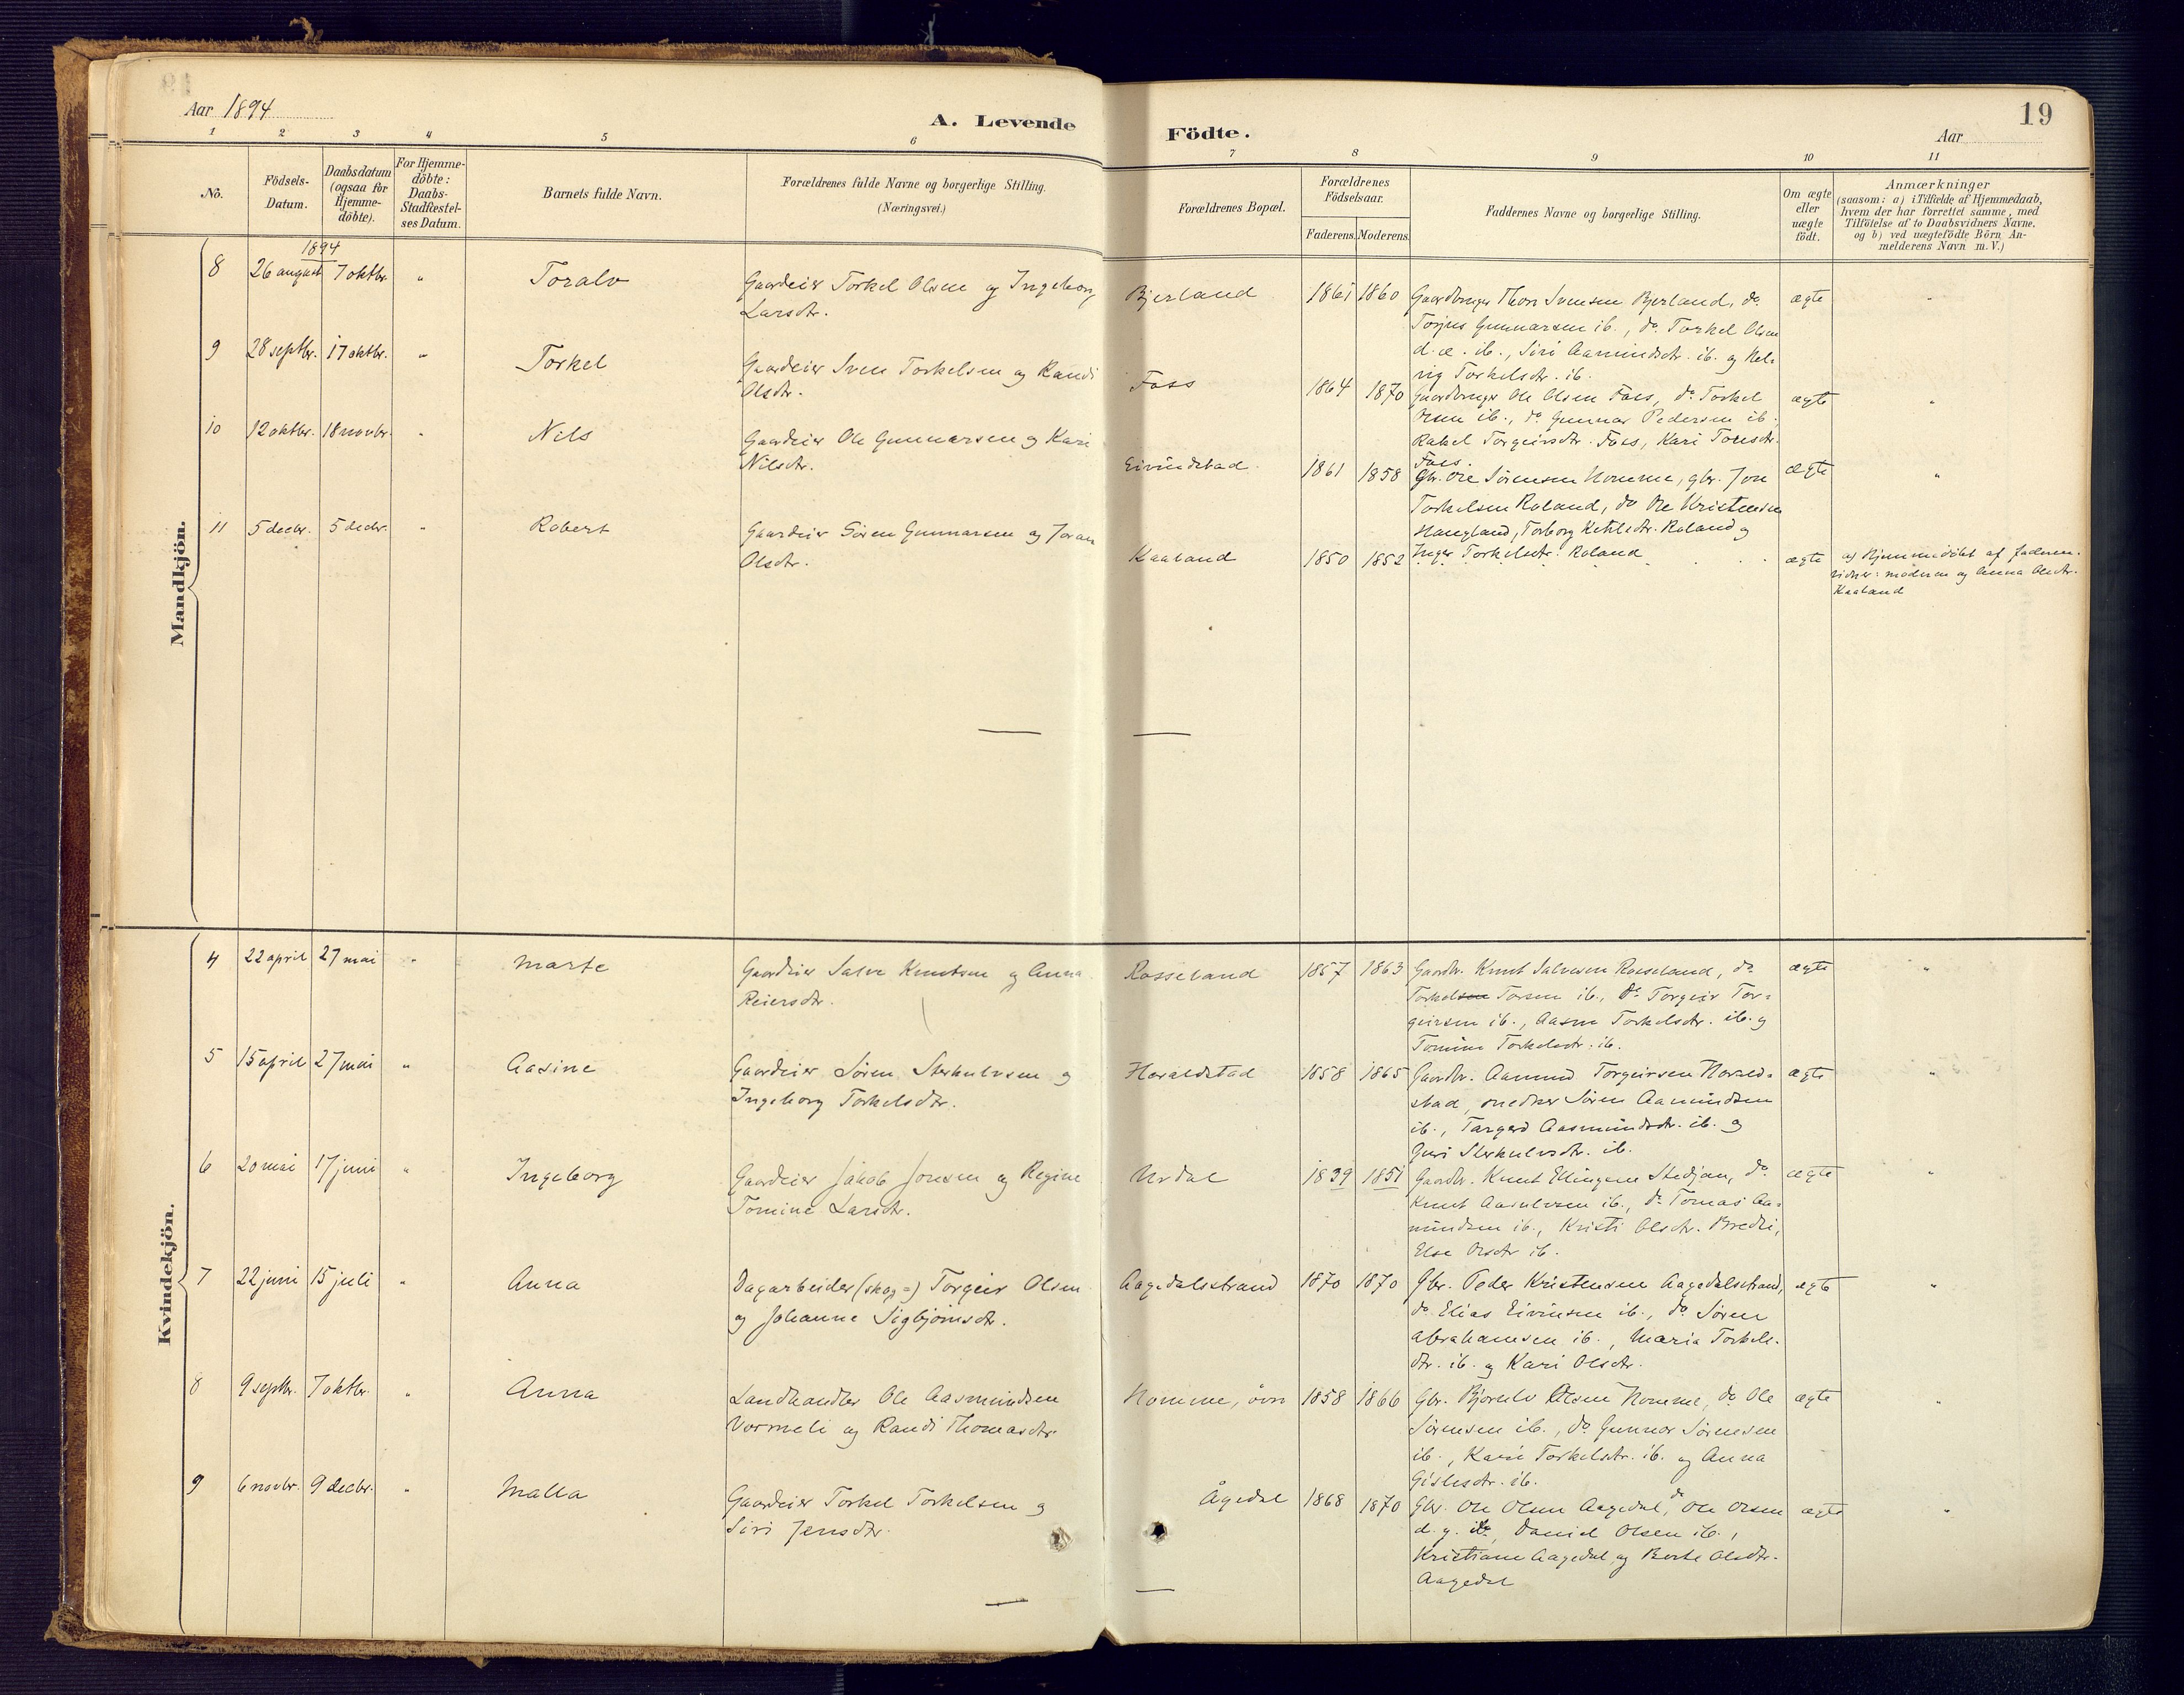 19
Aar 1894
A. Levende Födte.
Aar
1 2 3 4 5 6 7 8 9 10 11
No.
Födsels-Datum.
Daabsdatum (ogsaa for Hjemme-döbte).
For Hjemme-döbte: Daabs-Stadfæstel-ses Datum.
Barnets fulde Navn.
Forældrenes fulde Navne og borgerlige Stilling. (Næringsvei.)
Forældrenes Bopæl.
Forældrenes Födselsaar.
Faderens. Moderens.
Faddernes Navne og borgerlige Stilling.
Om ægte eller uægte födt.
Anmærkninger
(saasom: a) i Tilfælde af Hjemmedaab,
hvem der har forrettet samme, med
Tilföielse af to Daabsvidners Navne,
og b) ved uægtefödte Börn, An-
melderens Navn m. V.)
Mandkjön.
1894
8 26 august 7 oktbr. " Toralv
Gaardeier Torkel Olsen og Ingeborg
Larsdtr.
Bjerland 1861 1860
Gaardbruger Thor Svensen Bjerland, do.
Torjus Gunnarsen ib., do. Torkel Olsen
d. æ. ib., Siri Aamundsdtr. ib. og Hel-
vig Torkelsdtr. ib.
ægte "
9 28 septbr. 17 oktbr. " Torkel
Gaardeier Sven Torkelsen og Randi
Olsdtr.
Foss 1864 1870
Gaardbruger Ole Olsen Foss, do. Torkel
Olsen ib., do. Gunnar Pedersen ib.,
Rakel Torgeirsdtr. Foss, Kari Toresdtr.
Foss.
ægte "
10 12 oktbr. 18 novbr. " Nils
Gaardeier Ole Gunnarsen og Kari
Nilsdtr.
Eivindstad 1861 1858
Gbr. Ole Sörensen Homme, gbr. Jon
Torkelsen Roland, do Ole Kristensen
Haugland, Torborg Ketilsdtr. Roland og
Inger Torkelsdtr. Roland
ægte "
11 5 decbr. 5 decbr. " Robert
Gaardeier Sören Gunnarsen og Joran
Olsdtr.
Kaaland 1850 1852
ægte
a) Hjemmedöbt af faderen.
vidner: moderen og Anna Olsdtr.
Kaaland
Kvindekjön.
4 22 april 27 mai " Marte
Gaardeier Salve Knutsen og Anna
Reiersdtr.
Rosseland 1857 1863
Gaardbr. Knut Salvesen Rosseland, do.
Torkel Torsen ib., do. Torgeir Tor-
geirsen ib., Aasne Torkelsdtr. ib. og
Tomine Torkelsdtr. ib.
ægte "
5 15 april 27 mai " Aasine
Gaardeier Sören Sterkulvsen og
Ingeborg Torkelsdtr.
Haraldstad 1858 1865
Gaardbr. Aamund Torgeirsen Harald-
stad, snedker Sören Aamundsen
ib., Targerd Aasmundsdtr. ib. og
Guri Sterkulvsdtr. ib.
ægte "
6 20 mai 17 juni " Ingeborg
Gaardeier Jakob Jonsen og Regine
Tomine Larsdtr.
Urdal 1839 1851
Gaardbr. Knut Ellingsen Stedjan, do.
Knut Aasulvsen ib., do. Tomas Aa-
mundsen ib., Kristi Olsdtr. Bredli,
Else Olsdtr ib.
ægte "
7 22 juni 15 juli " Anna
Dagarbeider (skog-) Torgeir Olsen
og Johanne Sigbjörnsdtr.
Aagedalsstrand 1870 1870
Gbr. Peder Kristensen Aagedalsstrand,
do. Elias Eivinsen ib., do. Sören
Abrahamsen ib., Maria Torkels-
dtr. ib. og Kari Olsdtr.
ægte "
8 9 septbr. 7 oktbr. " Anna
Landhandler Ole Aasmundsen
Vormeli og Randi Thomasdtr.
Homme, övre 1858 1866
Gbr. Bjorulv Olsen Homme, do. Ole
Sörensen ib., do Gunnar Sörensen
ib., Kari Torkelsdtr. ib. og Anna
Gislesdtr. ib.
ægte "
9 6 novbr. 9 decbr. " Malla
Gaardeier Torkel Torkelsen og
Siri Jensdtr.
Ågedal 1868 1870
Gbr. Ole Olsen Aagedal, do Ole Olsen
d. y. ib., Daniel Olsen ib.,
Kristiane Aagedal og Berte Olsdtr.
Aagedal
ægte "